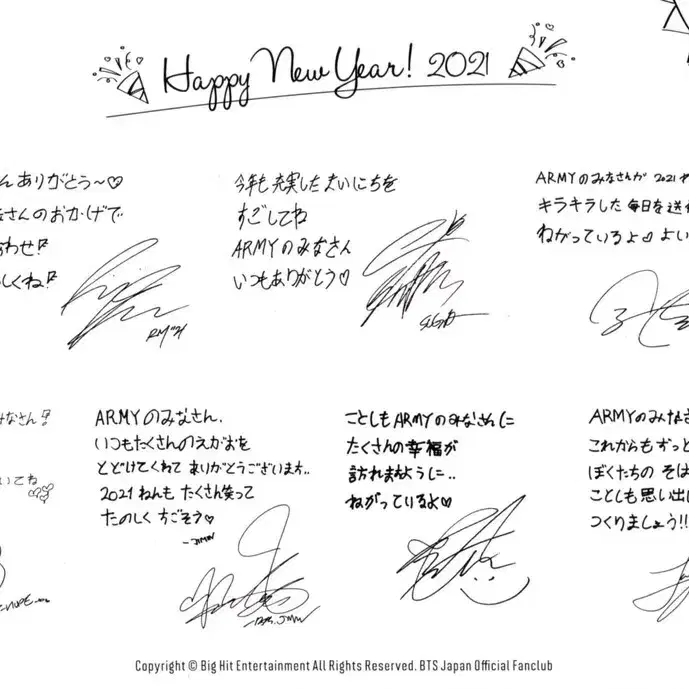 Happy New Year! 2021
んありがとう～♡
さんのおかげで
わせ!
しくね!
RM'21
今年も充実したまいにちを
すごしてね
ARMYのみなさん
いつもありがとう♡
SUGA
ARMYのみなさんが 2021
キラキラした毎日を送
ねがっているよ♡ よい
みなさん!
いてね
ARMYのみなさん.
いつもたくさんのえがおを
とどけてくれて ありがとうございます..
2021ねんも たくさん笑って
たのしく すごそう♡
-JIMIN
BTS. JIMIN
ことしもARMYのみなさんに
たくさんの幸福が
訪れますように..
ねがっているよ♡
ARMYのみなさ
これからもずっと
ぼくたちの そば
ことしも思い出
つくりましょう!!
Copyright © Big Hit Entertainment All Rights Reserved. BTS Japan Official Fanclub